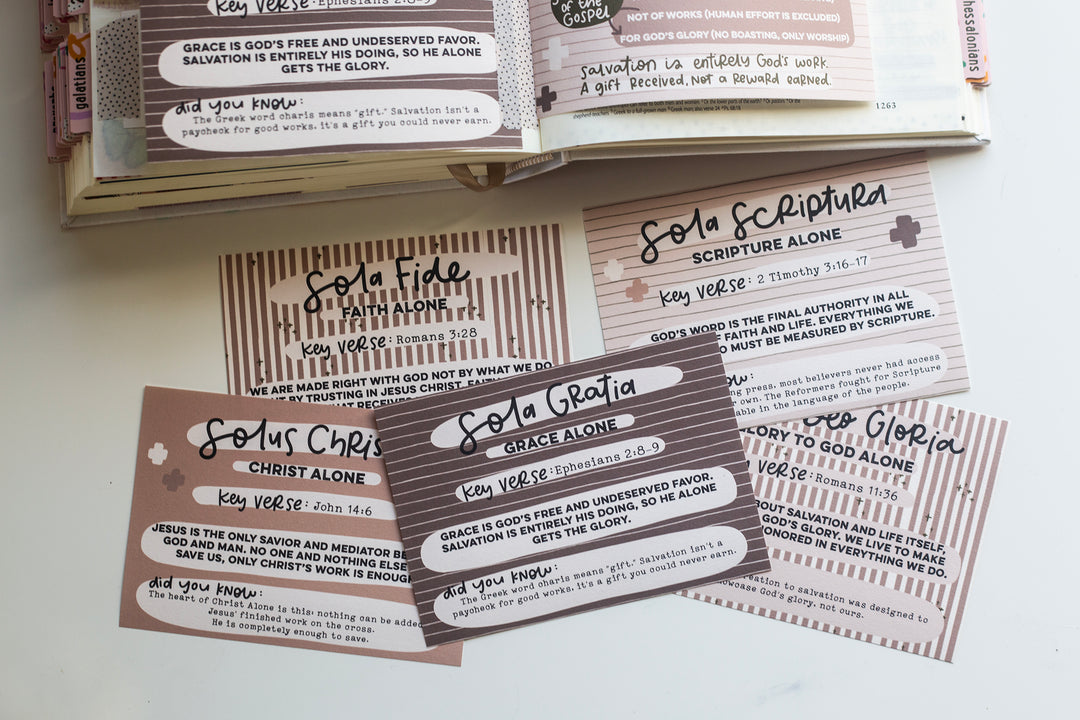 Key Verse: Ephesians 2:8-9
GRACE IS GOD'S FREE AND UNDESERVED FAVOR.
SALVATION IS ENTIRELY HIS DOING, SO HE ALONE
GETS THE GLORY.
did you know:
The Greek word charis means "gift." Salvation isn't a
paycheck for good works. it's a gift you could never earn.
galatians
of the
Gospel
NOT OF WORKS (HUMAN EFFORT IS EXCLUDED)
FOR GOD'S GLORY (NO BOASTING, ONLY WORSHIP)
Salvation is entirely God's work.
A gift received, not a reward earned.
1263
hessalonians
Sola Fide
FAITH ALONE
Key Verse: Romans 3:28
WE ARE MADE RIGHT WITH GOD NOT BY WHAT WE DO
BY TRUSTING IN JESUS CHRIST.
Sola Scriptura
SCRIPTURE ALONE
Key Verse: 2 Timothy 3:16-17
GOD'S WORD IS THE FINAL AUTHORITY IN ALL
OF FAITH AND LIFE. EVERYTHING WE
MUST BE MEASURED BY SCRIPTURE.
press, most believers never had access
own. The Reformers fought for Scripture
in the language of the people.
Solus Chris
CHRIST ALONE
Key Verse: John 14:6
JESUS IS THE ONLY SAVIOR AND MEDIATOR BE
GOD AND MAN. NO ONE AND NOTHING ELSE
SAVE US, ONLY CHRIST'S WORK IS ENOUGH
did you know:
The heart of Christ Alone is this: nothing can be added
Jesus' finished work on the cross.
He is completely enough to save.
Sola Gratia
GRACE ALONE
Key Verse: Ephesians 2:8-9
GRACE IS GOD'S FREE AND UNDESERVED FAVOR.
SALVATION IS ENTIRELY HIS DOING, SO HE ALONE
GETS THE GLORY.
did you know:
The Greek word charis means "gift." Salvation isn't a
paycheck for good works. it's a gift you could never earn.
Deo Gloria
GLORY TO GOD ALONE
Verse: Romans 11:36
ABOUT SALVATION AND LIFE ITSELF,
GOD'S GLORY. WE LIVE TO MAKE
HONORED IN EVERYTHING WE DO.
to salvation was designed to
showcase God's glory, not ours.